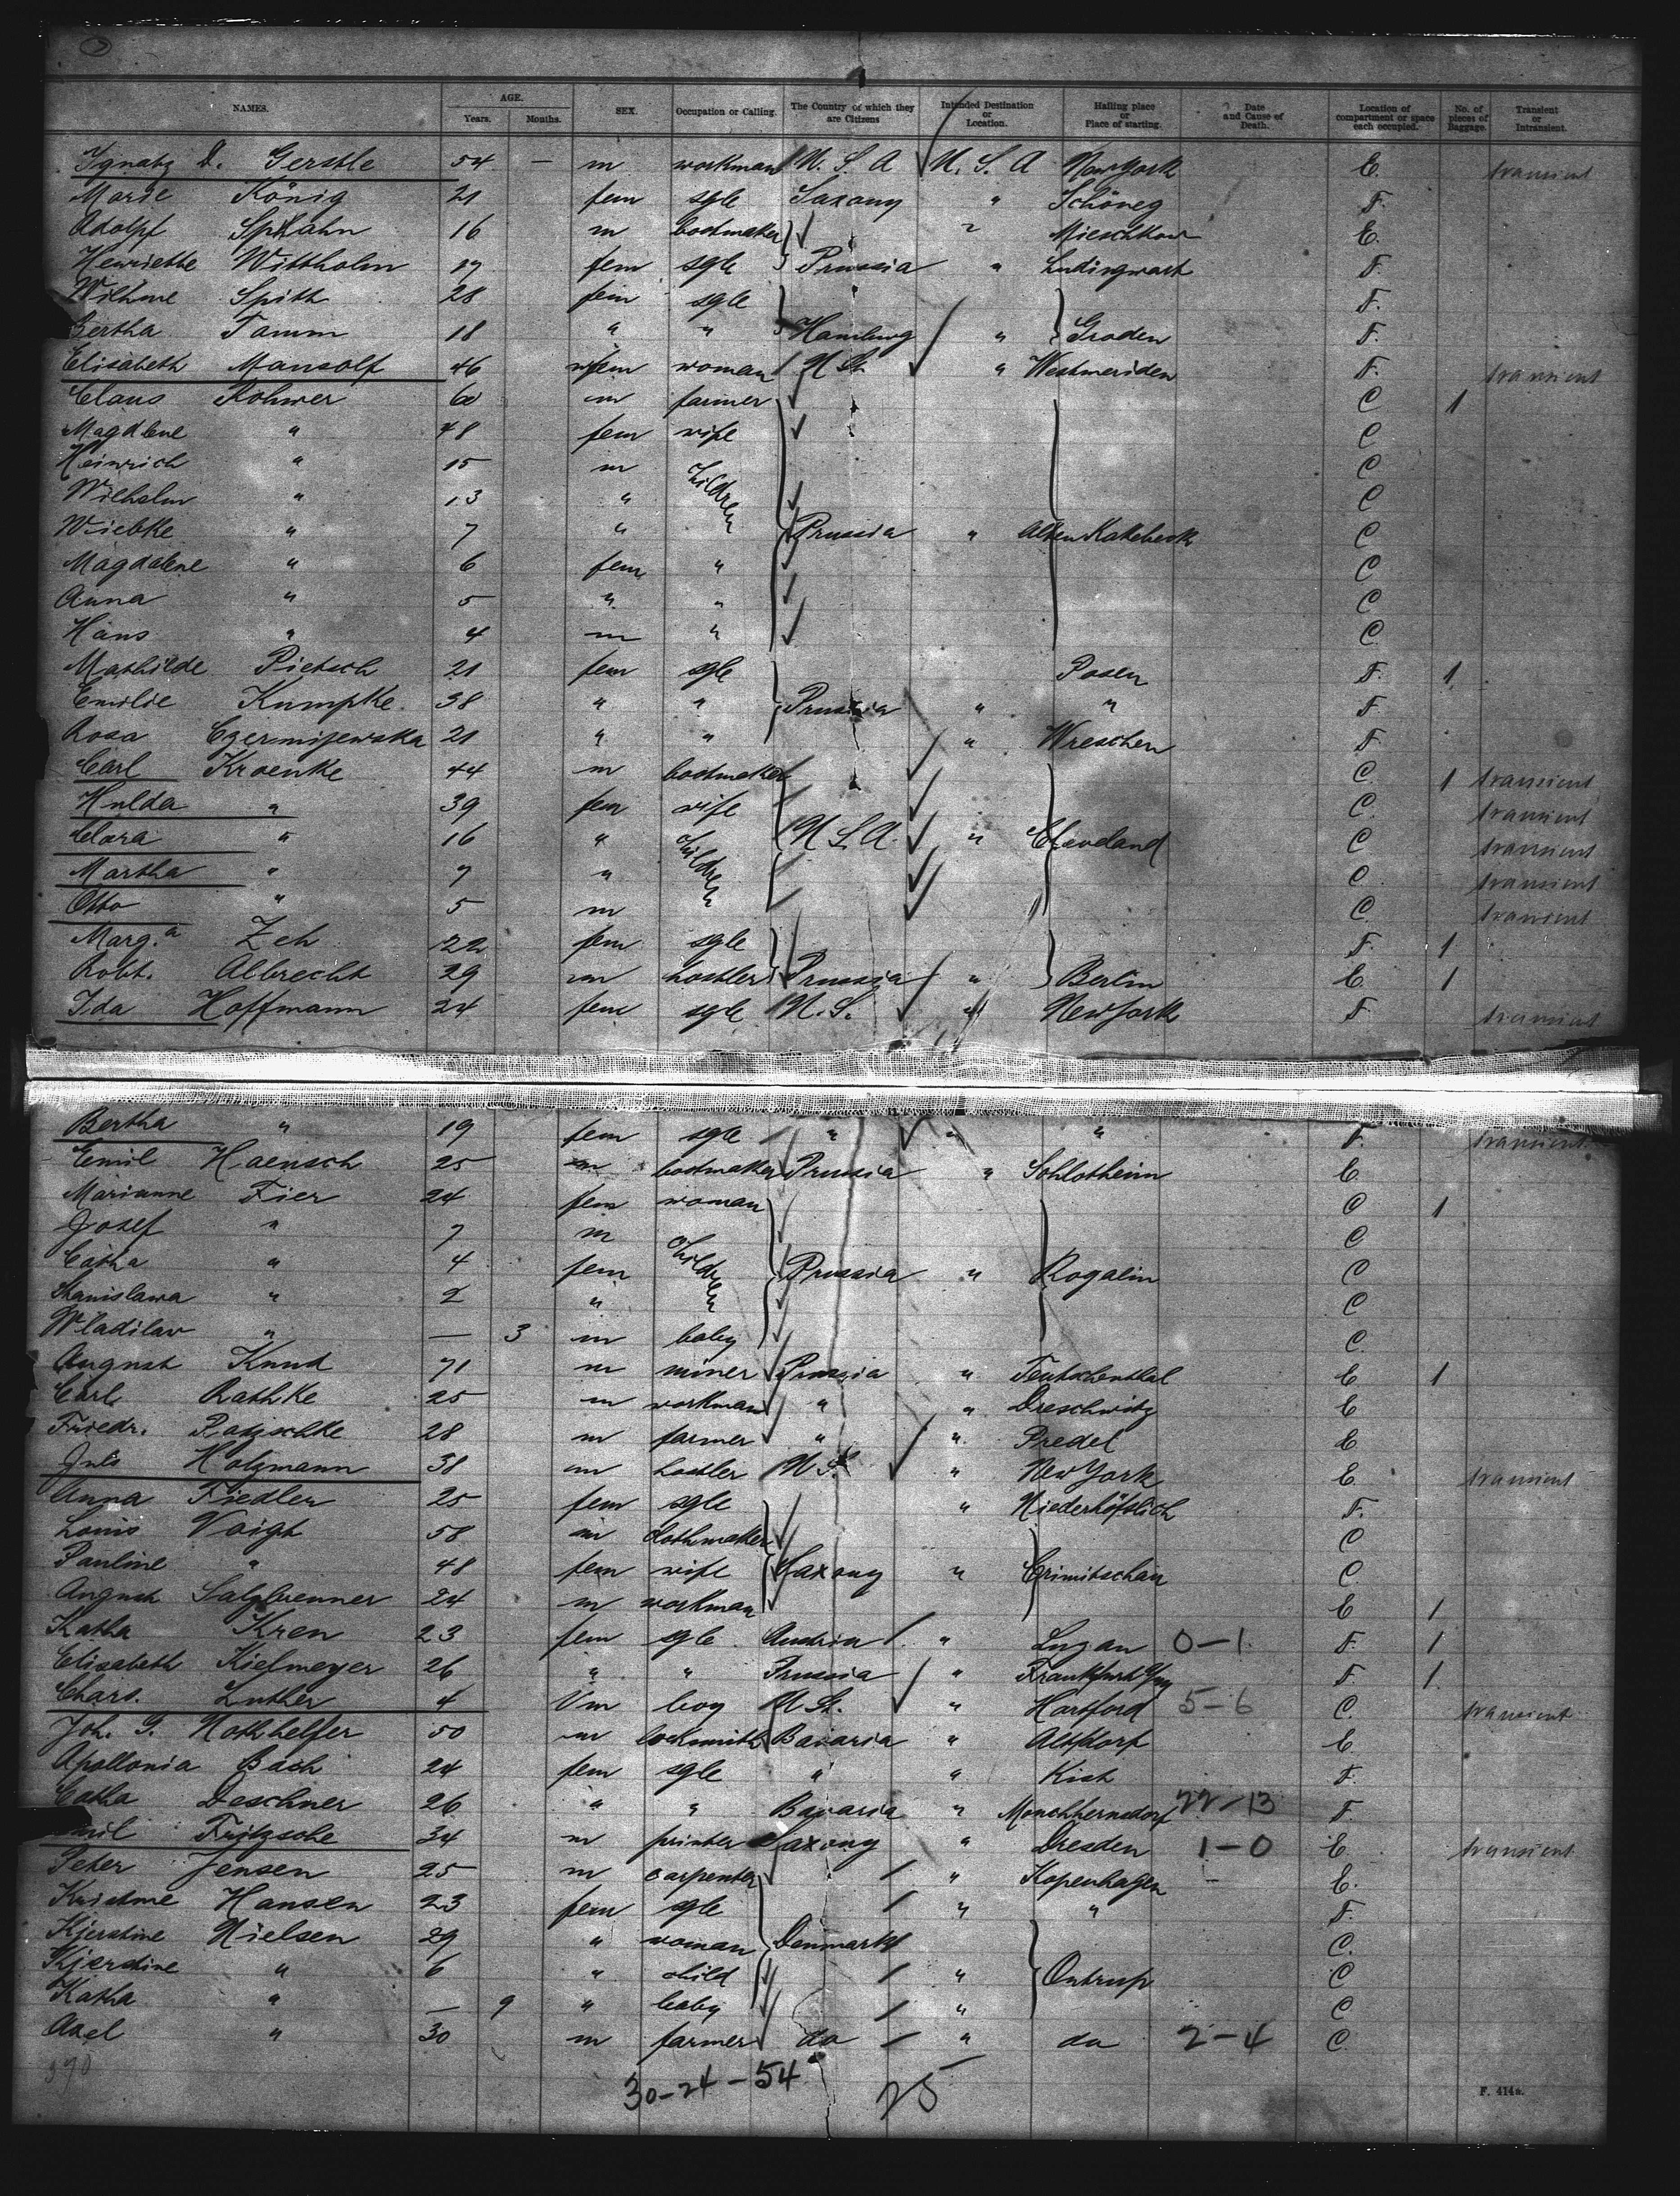 NAMES. AGE. Years. Months. SEX. Occupation or Calling. The Country of which they are Citizens Intended Destination or Location. Hailing place or Place of starting. Date and Cause of Death. Location of compartment or space each occupied. No. of pieces of Baggage. Transient or Intransient.
Ignatz D. Gerstle 54 — m workman U. S. A U. S. A New York E. transient
Marie König 21 fem sgle Saxony " Schöneg F.
Adolf Spkahn 16 m bootmaker " Mieschkow E.
Henriette Wittholm 17 fem sgle Prussia " Ludingwark F.
Wilhme Spith 28 fem sgle F.
Bertha Tamm 18 " " Hamburg " Groden F.
Elisabeth Mansolf 46 fem woman U St. " Westmeriden F. transient
Claus Rohwer 60 m farmer C 1
Magdlene " 48 fem wife C
Heinrich " 15 m children C
Wilhelm " 13 " C
Wiebke " 7 " Prussia " C
Magdalene " 6 fem " C
Anna " 5 " " C
Hans " 4 m " C
Mathilde Pietsch 21 fem sgle Posen F. 1
Emilie Kumpke. 38 " " Prussia " " F
Rosa Czermijewska 21 " " " Wreschen F
Carl Kroenke 44 m bootmaker C. 1 transient
Hulda " 39 fem wife C. transient
Clara " 16 " children U S. A. " Cleveland C transient
Martha " 7 " C transient
Otto " 5 m C. transient
Marg.a Zeh 22 fem sgle F. 1
Robt. Albrecht 29 m hostler Prussia " Berlin E. 1
Ida Hoffmann 24 fem sgle U. S. " New York F transient
Bertha " 19 fem sgle " " " F. transient
Emil Haensch 25 m bootmaker Prussia " Schlotheim E
Marianne Fier 24 fem woman C 1
Josef " 7 m children C
Catha " 4 fem Prussia " Rogalin C
Stanislawa " 2 " C
Wladilav " — 3 m baby C.
August Knud 71 m miner Prussia " Teutschenthal E 1
Carl Rathke 25 m workman " " Dreschwitz E
Friedr. Patzschke 28 m farmer " " Predel E
Juls Holzmann 38 m hostler U S. " New York E. transient
Anna Fiedler 25 fem sgle " Niederhöfslich F.
Louis Voigt 58 m clothmaker C
Pauline " 48 fem wife Saxony " Crimitschau C.
August Salzbrenner 24 m workman E 1
Katha Kren 23 fem sgle Austria " Luzan 0—1. F. 1
Elisabeth Kielmeyer 26 " " Prussia " F. 1.
Chars. Luther 4 m boy U. St. " Hartford 5—6 C. transient
Joh. G. Nothhelfer 50 m locksmith Bavaria " Altdorf E
Apollonia Bach 24 fem sgle " " Kist F.
Catha Deschner 26 " " Bavaria " 22—13 F
Emil Fritzsche 34 m printer Saxony " Dresden 1—0 E transient
Peter Jensen 25 m carpenter " Kopenhagen E.
Hansen 23 fem sgle " " F.
Kjerstine Nielsen 29 " woman Denmark C.
Kjerstine " 6 " child " Ontrup C
Katha " — 9 " baby " C
Axel " 30 m farmer do " do 2—4 C.
30—24—54 25
F. 414a.